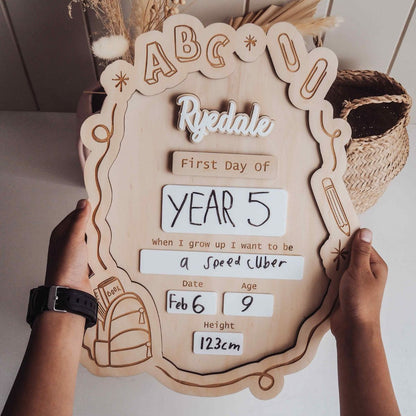 ABC
Ryedale
First Day Of
YEAR 5
When I grow up I want to be
a Speed Cuber
Date Age
Feb 6 9
Height
123cm